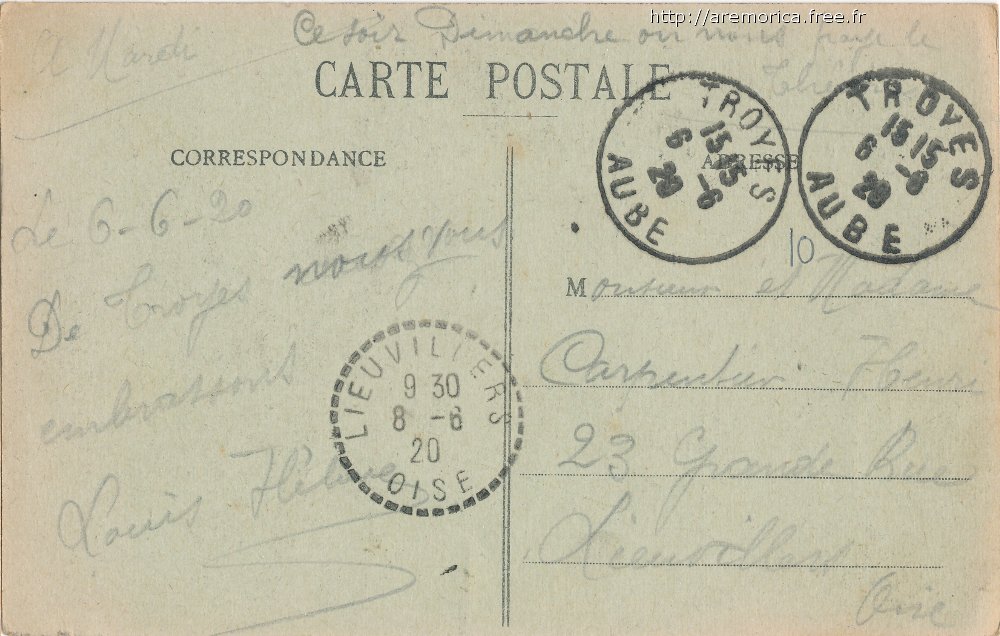 http://aremorica.free.fr
A Mardi
Ce soir Dimanche on nous paye le
Théâtre
CARTE POSTALE
CORRESPONDANCE
ADRESSE
TROYES
15 15
6 -6
20
AUBE
TROYES
15 15
6 -6
20
AUBE
10
Le 6-6-20
De Troyes nous vous
embrassons
Louis Hélène
LIEUVILLERS
9 30
8 -6
20
OISE
Monsieur et Madame
Carpentier Henri
23 Grande Rue
Lieuvillers
Oise